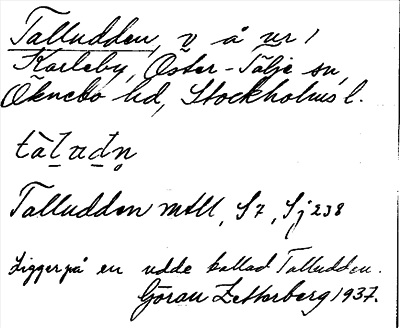 Talludden, v å ur /
Karleby, Öster-Tälje sn,
Öknebo hd, Stockholms l.
tàl̠ad̠n̥
Talludden mtll, S7, Sj 238
Ligger på en udde kallad Talludden.
Göran Zetterberg 1937.